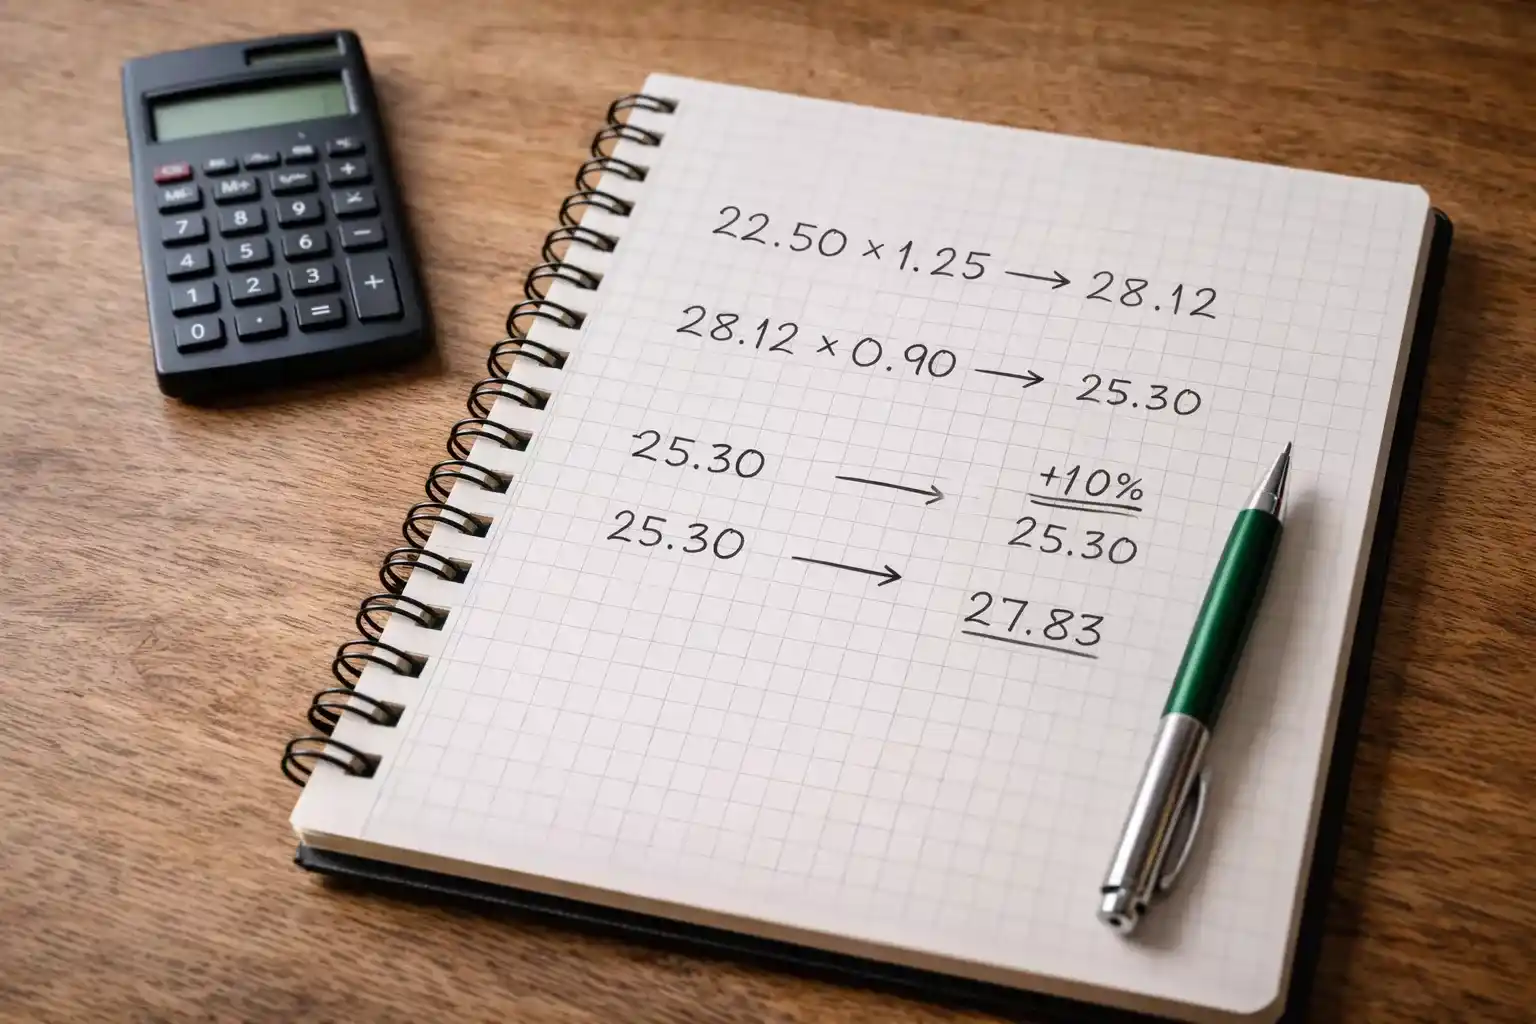 22.50 × 1.25 → 28.12
28.12 × 0.90 → 25.30
25.30 → +10%
25.30
25.30 → 27.83
M+
7 8 9 +
4 5 6 −
1 2 3 +
0 . =